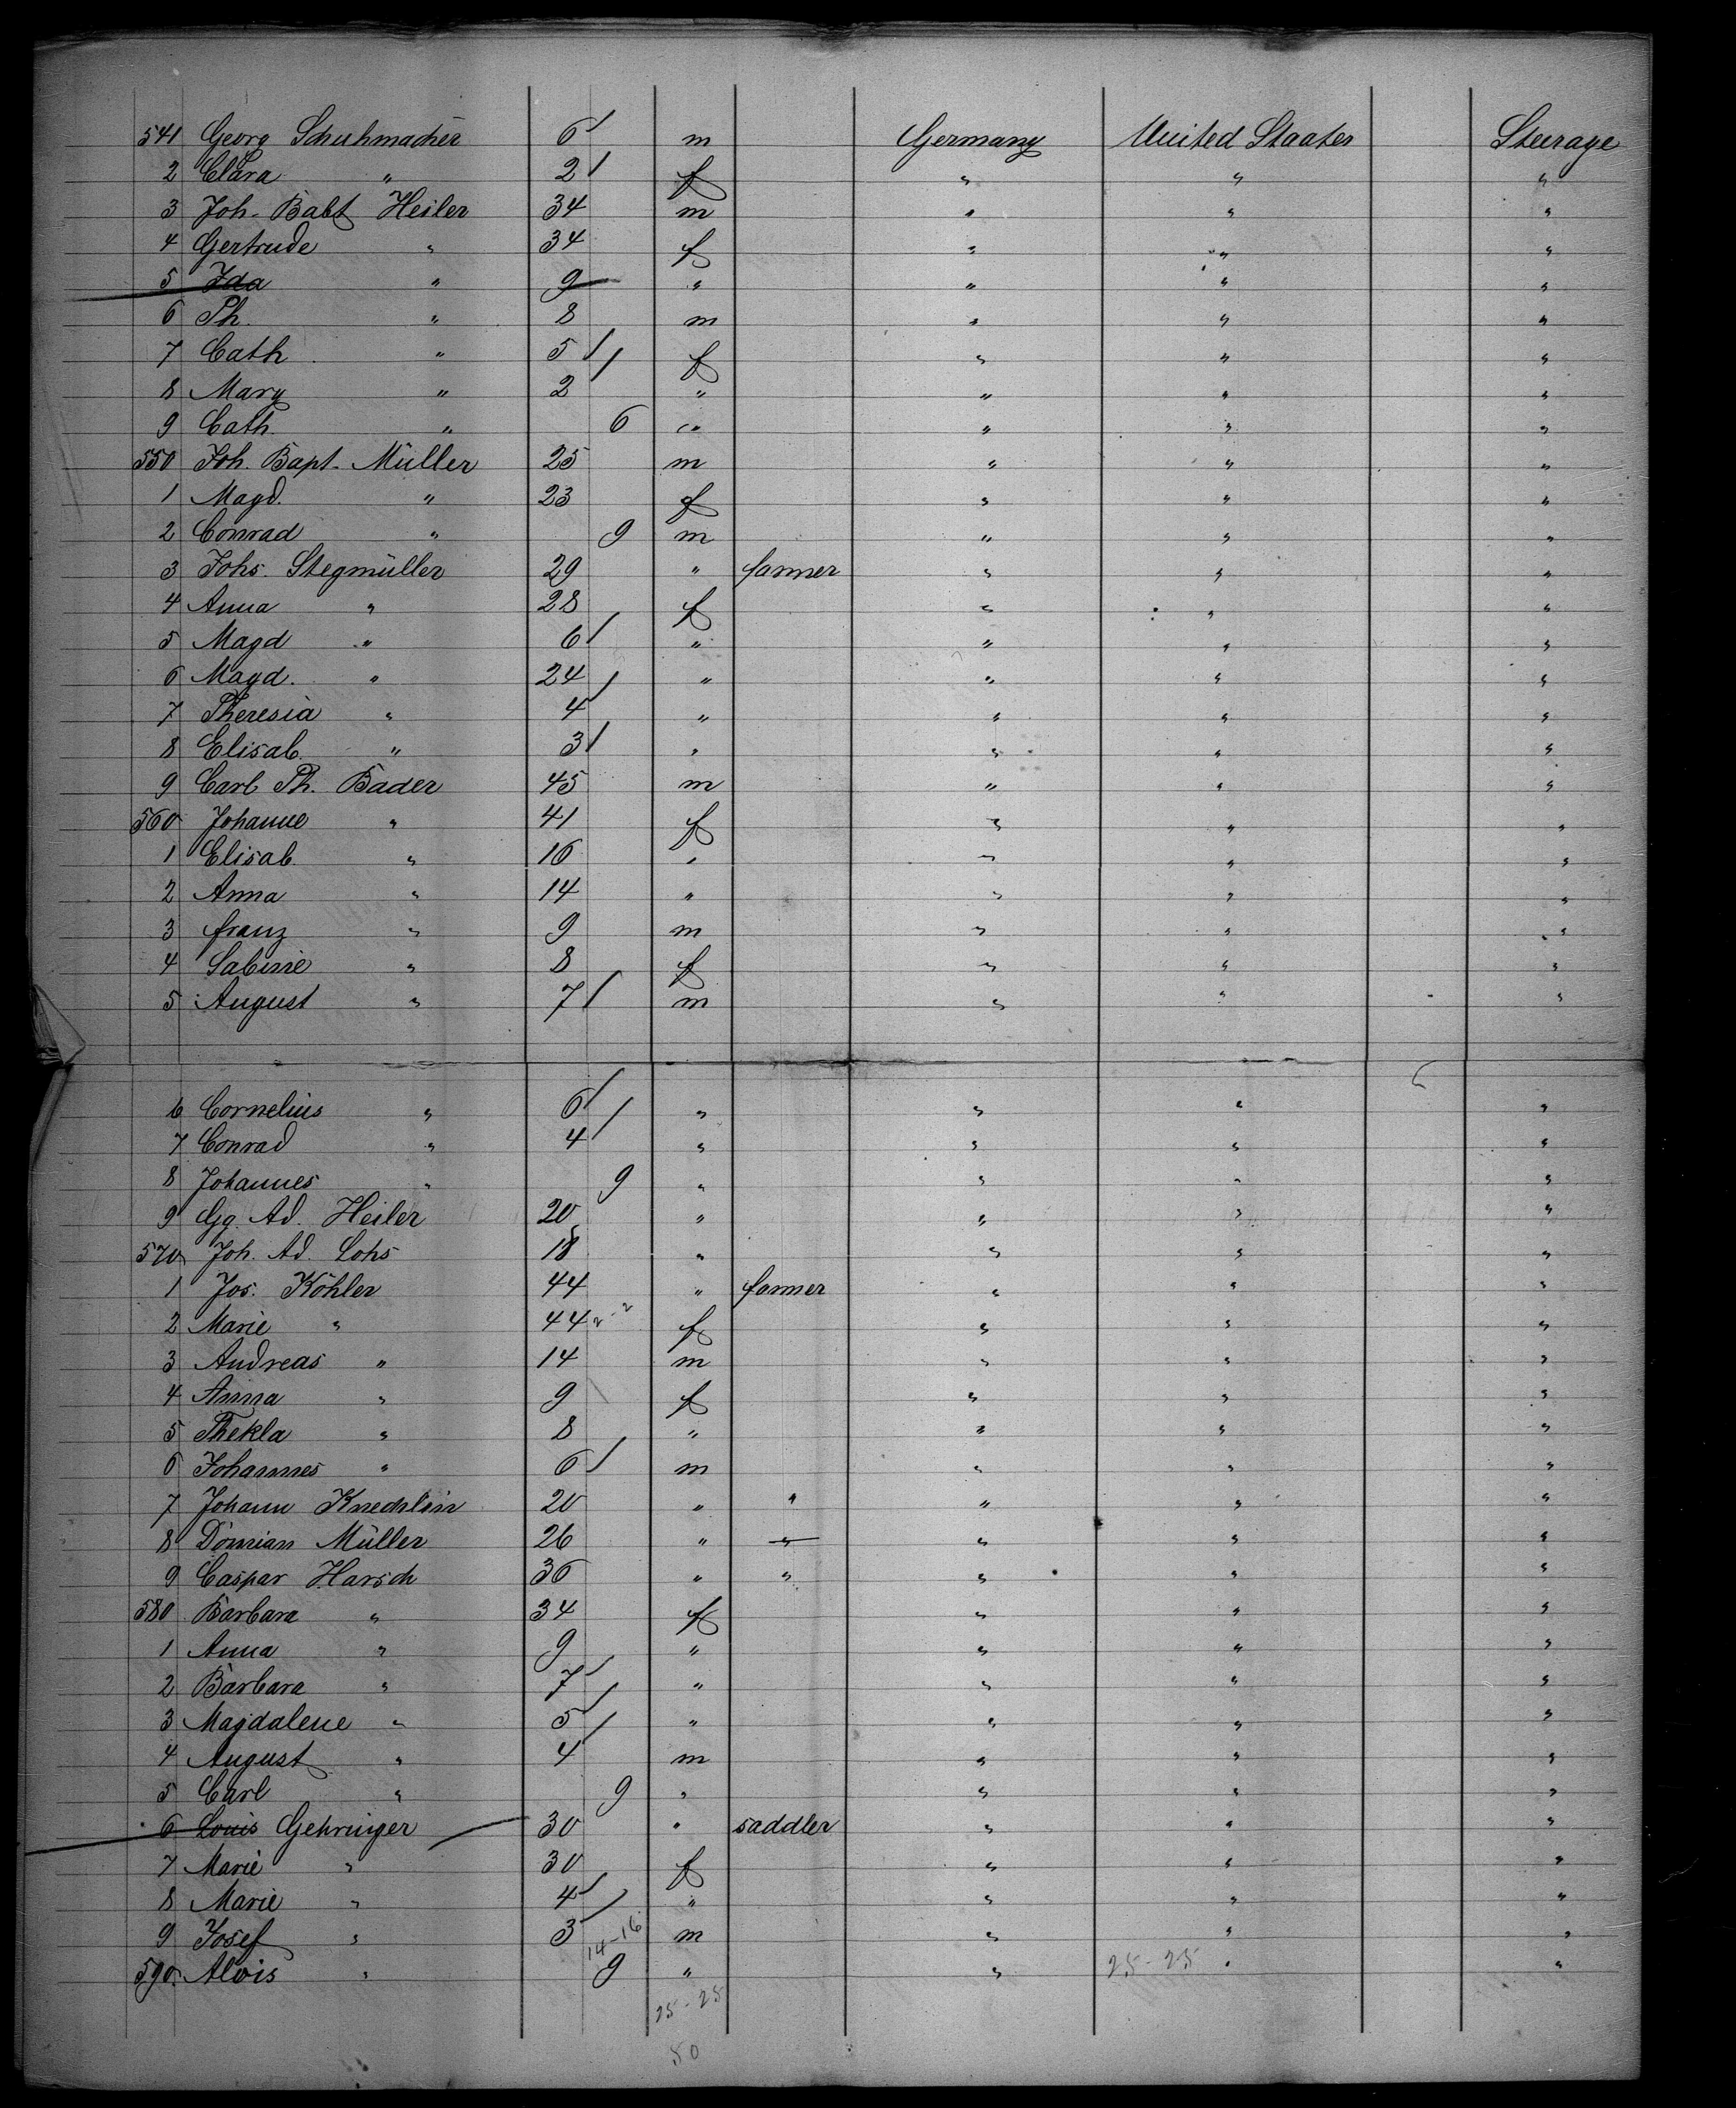 541 Georg Schuhmacher 6 m Germany United Staates Steerage
2 Clara " 2 f " " "
3 Joh. Babt Heiler 34 m " " "
4 Gertrude " 34 f " " "
5 Ida " 9 " " " "
6 Ph. " 8 m " " "
7 Cath " 5 f " " "
8 Mary " 2 " " " "
9 Cath. " 6 " " " "
550 Joh. Bapt. Müller 25 m " " "
1 Magd. " 23 f " " "
2 Conrad " 9 m " " "
3 Johs. Stegmüller 29 " farmer " " "
4 Anna " 28 f " " "
5 Magd " 6 " " " "
6 Magd. " 24 " " " "
7 Theresia " 4 " " " "
8 Elisab. " 3 " " " "
9 Carl Ph. Bader 45 m " " "
560 Johanne " 41 f " " "
1 Elisab. " 16 " " " "
2 Anna " 14 " " " "
3 franz " 9 m " " "
4 Sabine " 8 f " " "
5 August " 7 m " " "
6 Cornelius " 6 " " " "
7 Conrad " 4 " " " "
8 Johannes " 9 " " " "
9 Gg. Ad. Heiler 20 " " " "
570 Joh. Ad. Lohs 18 " " " "
1 Jos. Köhler 44 " farmer " " "
2 Marie " 44 2-2 f " " "
3 Andreas " 14 m " " "
4 Anna " 9 f " " "
5 Thekla " 8 " " " "
6 Johannes " 6 m " " "
7 Johann 20 " " " " "
8 Damian Müller 26 " " " " "
9 Caspar Harsch 36 " " " " "
580 Barbara " 34 f " " "
1 Anna " 9 " " " "
2 Barbara " 7 " " " "
3 Magdalene " 5 " " " "
4 August " 4 m " " "
5 Carl " 9 " " " "
6 Louis Gehringer 30 " saddler " " "
7 Marie " 30 f " " "
8 Marie " 4 " " " "
9 Josef " 3 14-16 m " " "
590. Alois " 9 " " 25-25 " "
25-25
50